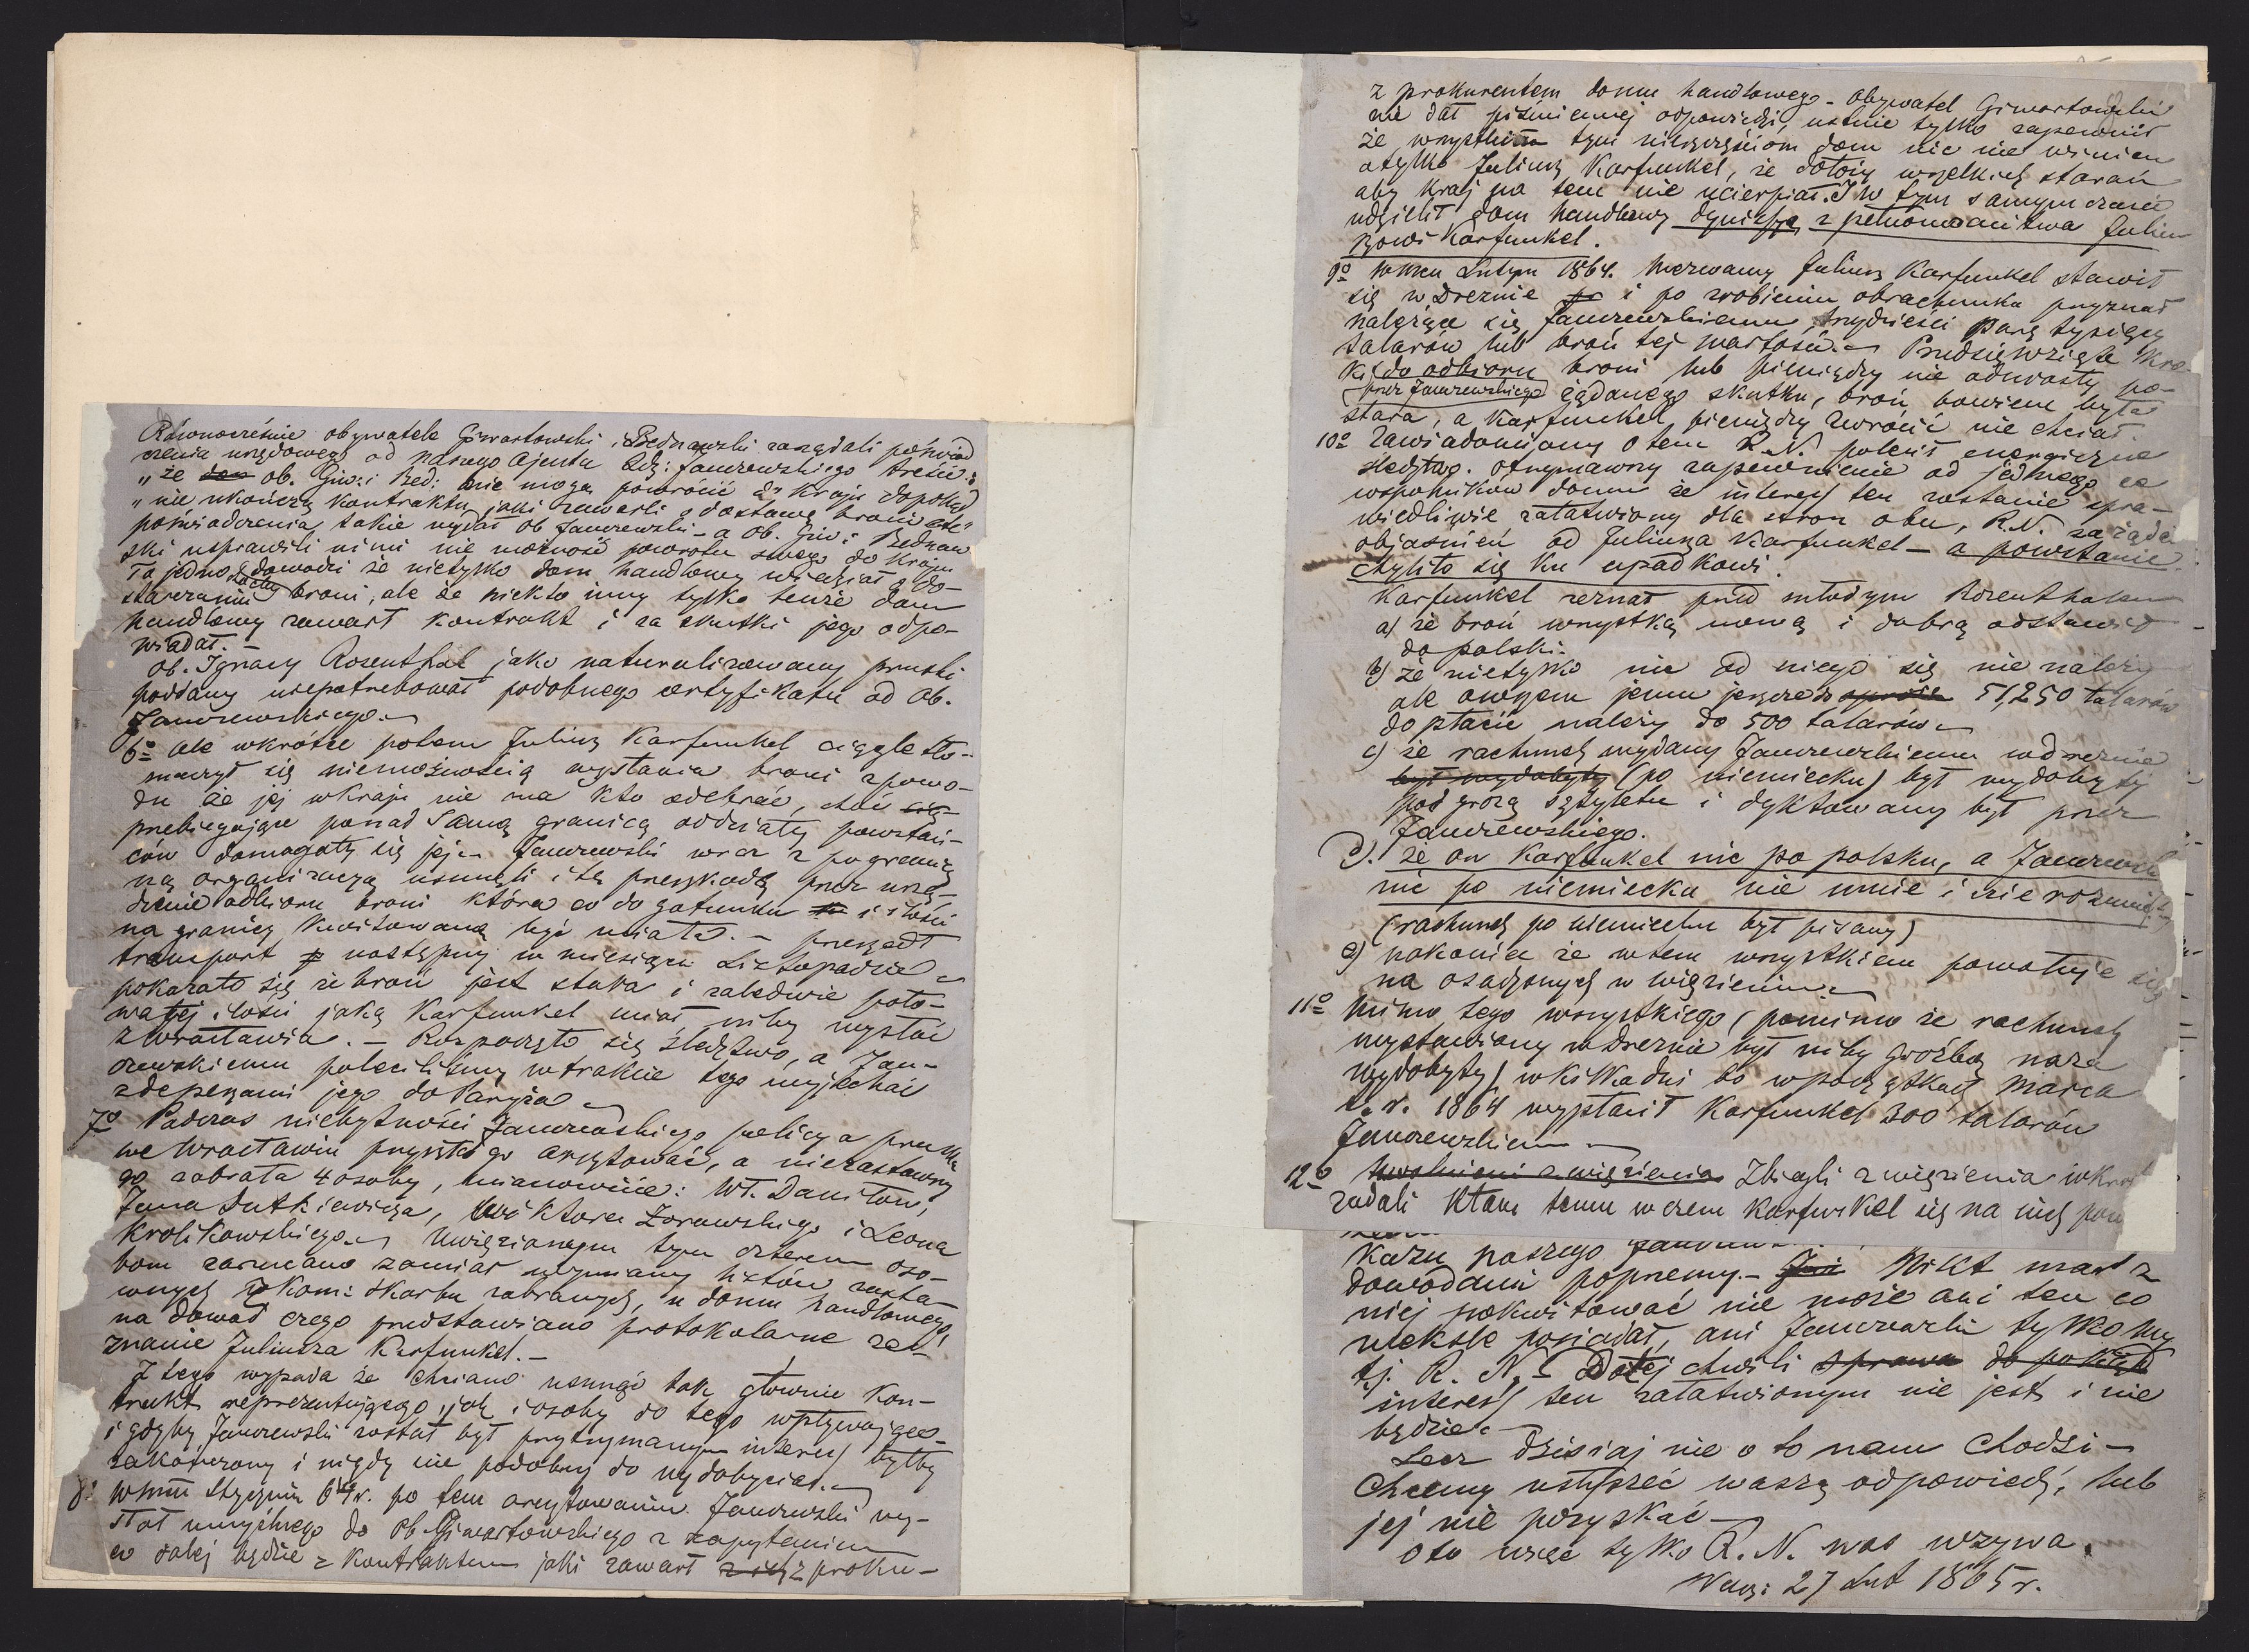 Równocześnie obywatele Giwartowski i Bednawski zażądali poświad
czenia urzędowego od naszego Ajenta Edz: Janczewskiego treści:
„że ob. Giw: i Bed: nie mogą powrócić do kraju dopokąd
„nie ukończą kontraktu jaki zawarli o dostawę broni etc"
poświadczenia takie wydał ob Janczewski – a ob. Giw: i Bednaw
ski usprawili nimi nie możność powrotu swego do kraju
To jedno dowodzi że nietylko dom handlowy wiedział o do-
starczaniu broni, ale że niekto inny tylko tenże dom
handlowy zawarł kontrakt i za skutki jego odpo-
wiadał. –
Ob. Ignacy Rosenthal jako naturalizowany pruski
poddany niepotrzebował podobnego certyfikatu od ob.
Janczewskiego.
6o ale wkrótce potem Juliusz Karfunkel ciągle tło-
maczył się niemożnością wysłania broni z powo-
du że jej w kraju nie ma kto odebrać, choć
przebiegające ponad samą granicą oddziały powstań-
ców domagały się jej. Janczewski wraz z pogranicz
ną organizacyą usunęli i tę przeszkodę przez urzą
dzenie odbioru broni która co do gatunku i ilości
na granicy kwitowaną być miała. – przeszedł
transport następny w miesiącu Listopadzie
pokazało się że broń jest stara i zaledwie poło-
wa tej ilości jaką Karfunkel miał niby wysłać
z Wrocławia. – Rozpoczęto się śledztwo, a Jan-
czewskiemu poleciliśmy w trakcie tego wyjechać
z depeszami jego do Paryża
7o Podczas niebytności Janczewskiego policya pruska
we Wrocławiu przyszła go aresztować, a niezastawszy
go zabrała 4 osoby, mianowicie: Wł. Daniłow,
Jana Dutkiewicza, Wiktora Żorawskiego i Leona
Krolikowskiego. Uwięzionym tym czterem oso-
bom zarzucano zamiar wymiany listów zasta-
wnych z Kom: Skarbu zabranych, u domu handlowego,
na dowód czego przedstawiano protokolarne ze-
znanie Juliusza Karfunkel. –
Z tego wypada że chciano usunąć tak głównie kon-
trakt reprezentującego, jak i osoby do tego wpływające
i gdyby Janczewski został był przytrzymanym interes byłby
zakończony i nigdy nie podobny do wydobycia.
8o W mcu Styczniu 64 r. po tem aresztowaniu Janczewski wy-
słał umyślnego do ob. Giwartowskiego z zapytaniem
co dalej będzie z kontraktem jaki zawarł z proku-
z prokurentem domu handlowego – obywatel Giwartowski
nie dał piśmiennej odpowiedzi, ustnie tylko zapewnił
że wszystkim tym nieszczęściom dom nic nie winien
a tylko Juliusz Karfunkel, że dołoży wszelkich starań
aby kraj na tem nie ucierpiał. I w tym samym czasie
udzielił dom handlowy dymisyą z pełnomocnictwa Juliu
szowi Karfunkel.
9o W mcu Lutym 1864. wezwany Juliusz Karfunkel stawił
się w Dreznie i po zrobieniu obrachunku przyznał
należące się Janczewskiemu trzydzieści parę tysięcy
talarów lub broń tej wartości. – Przedsięwzięte kro
ki do odbioru broni lub pieniędzy nie odniosły po-
przez Janczewskiego żądanego skutku, broń bowiem była
stara, a Karfunkel pieniędzy zwrócić nie chciał.
10o Zawiadomiony o tem R. N. polecił energiczne
śledztwo. otrzymawszy zapewnienie od jednego ze
wspólników domu że interes ten zostanie spra-
wiedliwie załatwiony dla stron obu, R. N. zażądał
objaśnień od Juliusza Karfunkel – a powstanie
chyliło się ku upadkowi.
Karfunkel zeznał przed młodym Rosenthalem
a) że broń wszystką nową i dobrą odstawił
do polski.
b) że nietylko nic od niego się nie należy
ale owszem jemu jeszcze do 51,250 talarów
dopłacić należy do 500 talarów
c) że rachunek wydany Janczewskiemu w Dreznie
był wydobyty (po niemiecku) był wydobyty
pod grozą sztyletu i dyktowany był przez
Janczewskiego.
d). że on Karfunkel nic po polsku, a Janczewski
nic po niemiecku nie umie i nie rozumie
(rachunek po niemiecku był pisany)
e) nakoniec że w tem wszystkiem powołuje się
na osadzonych w więzieniu.
11o Mimo tego wszystkiego (pomimo że rachunek
wystawiony w Dreznie był niby groźbą noża
wydobyty) w kilka dni bo w początkach marca
t. r. 1864 wypłacił Karfunkel 300 talarów
Janczewskiemu
12o Uwolnieni z więzienia Zbiegli z więzienia wkrót
zadali kłam temu w czem Karfunkel się na nich pow
kazu naszego
dowodami poprzemy. – Nikt masz z
niej pokwitować nie może ani ten co
weksle posiadał, ani Janczewski tylko my
tj. R. N. – Do tej chwili sprawa do pokąd
interes ten załatwionym nie jest i nie
będzie.
Lecz dzisiaj nie o to nam chodzi –
Chcemy usłyszeć waszą odpowiedź, lub
jej nie pozyskać –
oto więc tylko R. N. was wzywa.
27 Lut 1865 r.